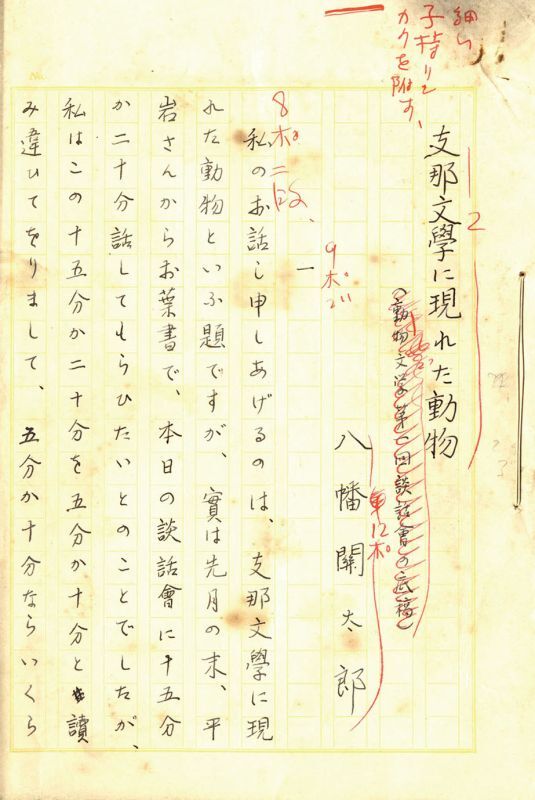 細い
子持リで
カクを附す、
2
支那文學に現れた動物
（動物文学第一回談話會の底稿）
第12ポ
八幡關太郎
9ポ
一
8ポ二段、
私のお話し申しあげるのは、支那文學に現
れた動物といふ題ですが、實は先月の末、平
岩さんからお葉書で、本日の談話會に十五分
か二十分話してもらひたいとのことでしたが、
私はこの十五分か二十分を五分か十分と讀
み違ひてをりまして、五分か十分ならいくら